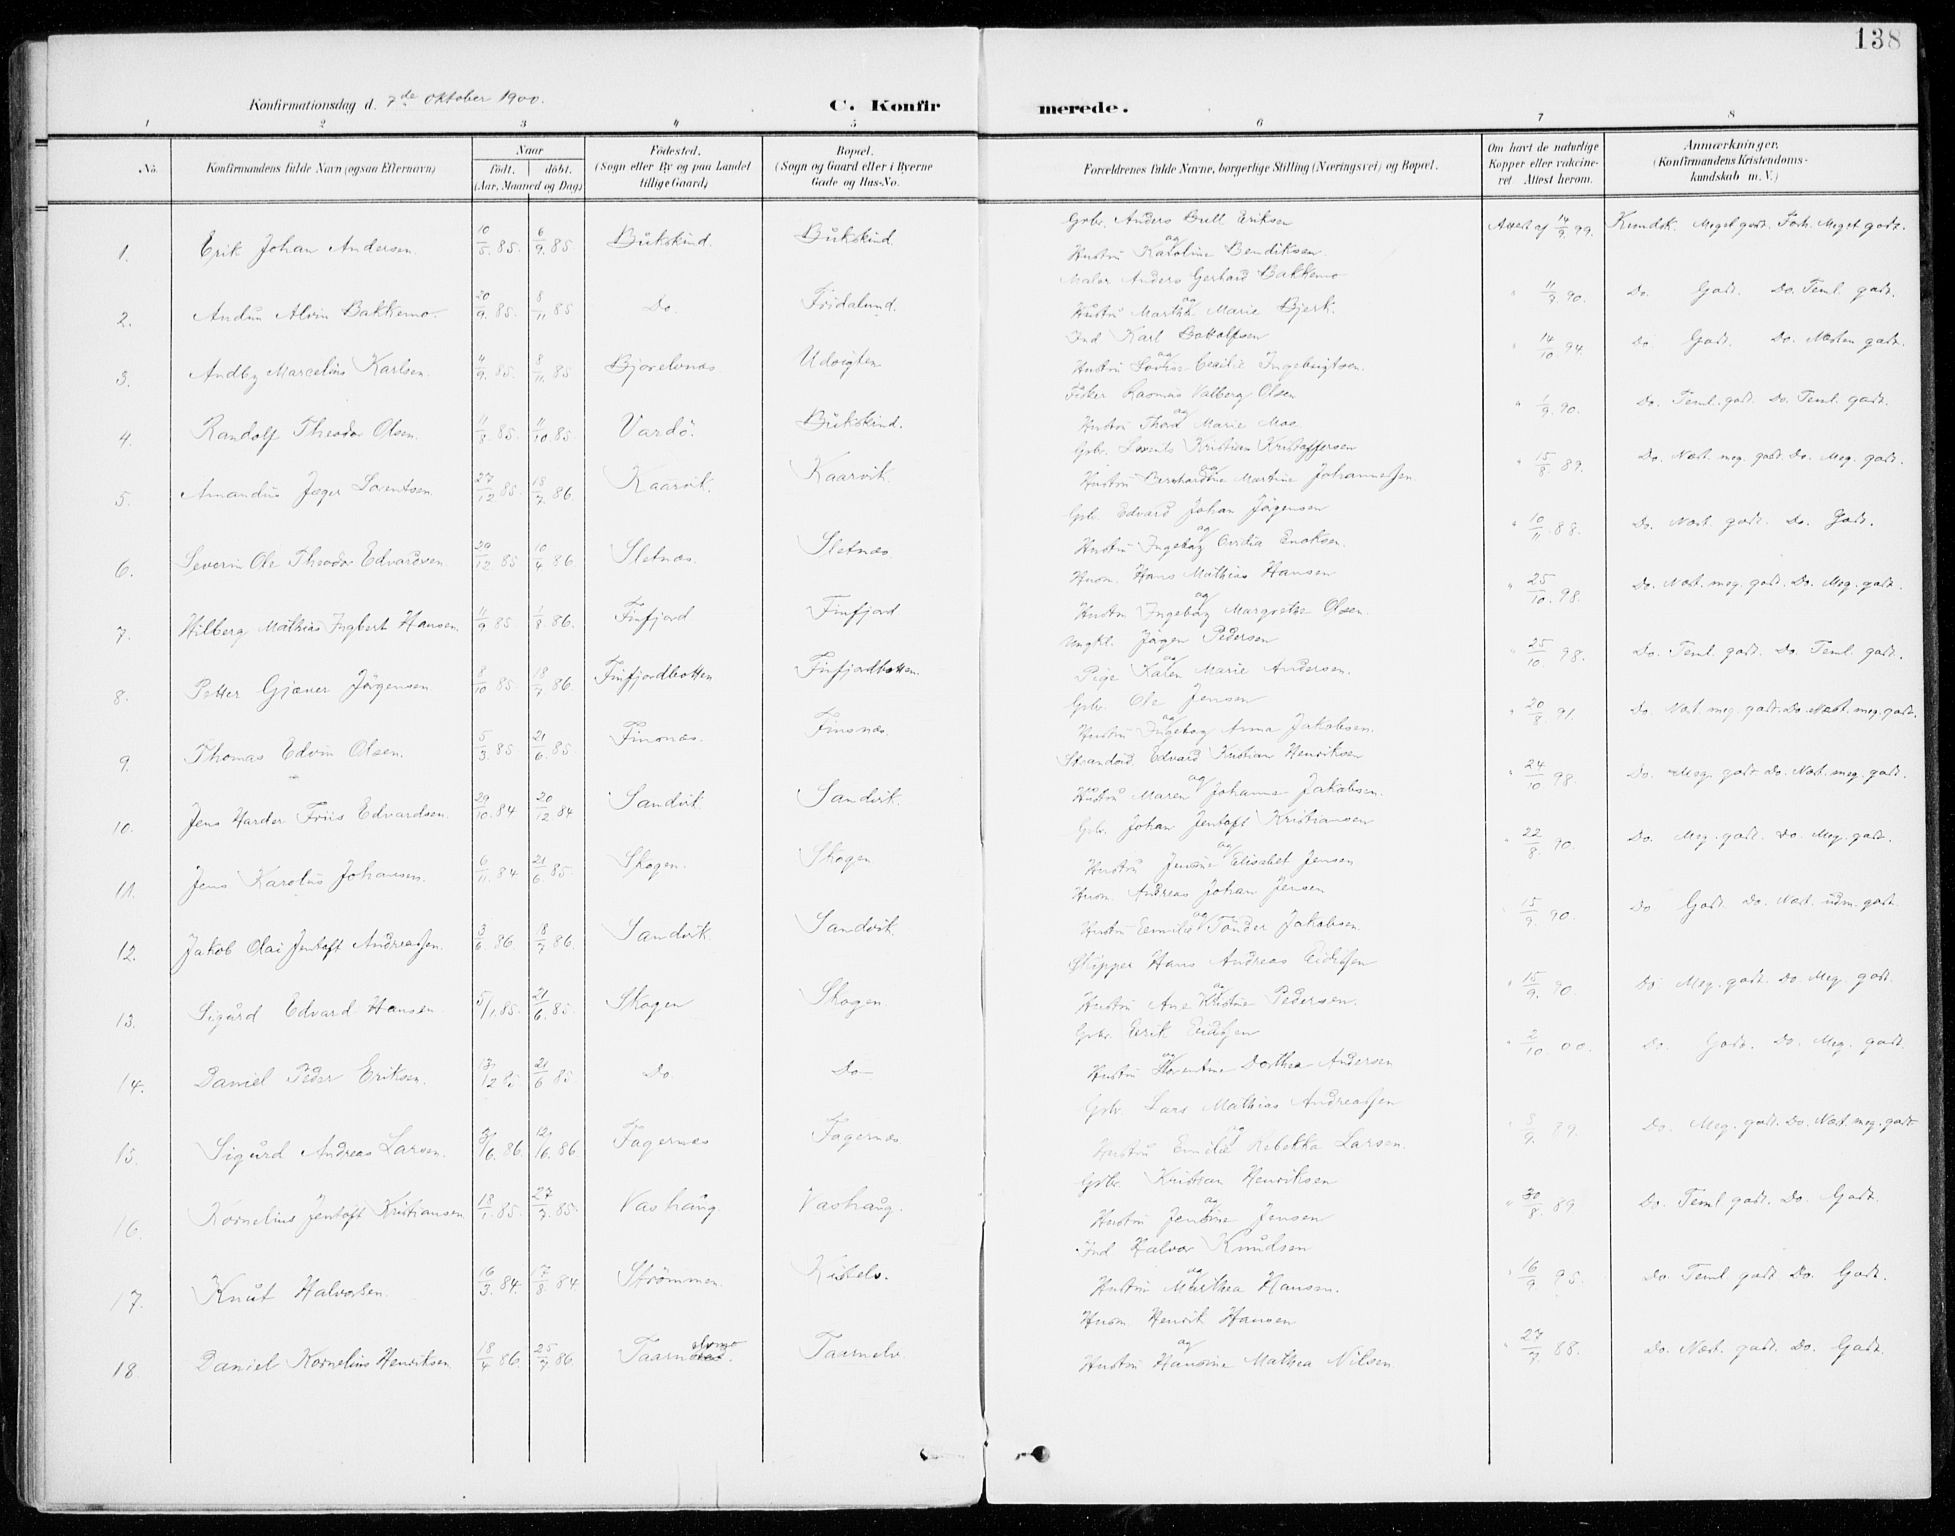 138
Konfirmationsdag d. 7de Oktober 1900.
C. Konfirmerede.
1 2 3 4 5 6 7 8
No. Konfirmandens fulde Navn (ogsaa Efternavn) Naar født. døbt. (Aar, Maaned og Dag) Fødested. (Sogn eller By og paa Landet tillige Gaard) Bopæl. (Sogn og Gaard eller i Byerne Gade og Hus-No. Forældrenes fulde Navne, borgerlige Stilling (Næringsvei) og Bopæl. Om havt de naturlige Kopper eller vakcineret. Attest herom. Anmærkninger. (Konfirmandens Kristendomskundskab m. V.)
1. Erik Johan Andersen 10/5. 85. 6/9. 85 Bukskind. Bukskind Gbr. Anders Bull Eriksen og Hustru Karoline Bendiksen Attest af 14/9. 99. Kundsk. Meget godt. Forh. Meget godt.
2. Alvin Bakkemo. 20/9. 85. 8/11. 85 Do. Fridalund. Maler Anders Gerhard Bakkemo og Hustru Martha Marie Bjerk. " 11/9. 90. Do. Godt. Do. Teml. godt.
3. Marcelius Karlsen. 4/9. 85. 8/11. 85 Bjorelvnes Udsigten Ind Karl og Hustru Cecilie Ingebrigtsen. " 14/10 94. Do. Godt. Do. Næsten godt.
4. Randolf Theodor Olsen. 11/8. 85. 11/10. 85. Vardø. Bukskind. Fisker Rasmus Valberg Olsen og Hustru Marie Moe " 1/9. 90. Do. Teml. godt. Do. Teml. godt.
5. Amandus Jæger Lorentsen. 27/12. 85. 18/7. 86 Kaarvik. Kaarvik. Gbr. Lorents Kristian Kristoffersen og Hustru Bernhardine Martine Johannessen. " 15/8. 89. Do. Næst. meg. godt. Do. Meg. godt.
6. Severin Ole Theodor Edvardsen. 30/12. 85 10/4. 86. Sletnæs. Sletnæs Gbr. Edvard Johan Jørgensen og Hustru Ingeborg Ovidia Enoksen. " 10/11. 88. Do. Næst. godt. Do. Godt.
7. Hilberg Mathias Ingbert Hansen. 11/9 85. 1/8. 86. Finfjord Finfjord Husm. Hans Mathias Hansen og Hustru Ingeborg Margrethe Olsen. " 25/10. 98. Do. Næst. meg. godt. Do. Meg. godt.
8. Petter Gjæver Jørgensen 8/10. 85 18/7. 86. Finfjordbotten Finfjordbotten. Ungkl. Jørgen Pedersen og Pige Karen Marie Andersen. " 25/10 98. Do. Teml. godt. Do. Teml. godt.
9. Thomas Edvin Olsen. 5/3. 85 21/6. 85. Finsnæs. Finsnæs Gbr. Ole Jensen og Hustru Ingeborg Anna Jakobsen. " 20/8. 91. Do. Næst. meg. godt. Do. Næst. meg. godt.
10. Jens Harder Friis Edvardsen. 29/10. 84 20/12 84 Sandvik Sandvik. Strandsid. Edvard Kristian Henriksen og Hustru Maren Johanna Jakobsen. " 24/10 98. Do. Meg. godt Do. Næst. meg. godt.
11. Jens Karolus Johansen. 6/11. 84 21/6. 85. Skogen. Skogen Gbr. Johan Jentoft Kristiansen og Hustru Jensine Elisabet Jensen " 22/8. 90. Do. Meg. godt. Do. Meg. godt.
12. Jakob Olai Jentoft Andreassen. 3/6. 86. 18/7. 86. Sandvik. Sandvik. Husm. Andreas Johan Jensen og Hustru Emilie Tønder Jakobsen. " 15/9. 90. Do Godt. Do. Næst. udm. godt.
13. Sigurd Edvard Hansen. 5/1. 85. 21/6. 85. Skogen Skogen. Skipper Hans Andreas Eidissen og Hustru Ane Kristine Pedersen. " 15/9. 90 Do Meg. godt. Do Meg. godt.
14. Daniel Peder Eriksen. 21/6 85. Do. Do Gbr. Erik Eidissen og Hustru Florentine Dorthea Andersen " 2/10. 00. Do. Godt. Do. Meg. godt.
15. Sigurd Andreas Larsen. 3/6. 86. 12/6. 86. Fagernæs Fagernæs Gbr. Lars Mathias Andreassen og Hustru Emilie Rebekka Larsen. 89. Do. Meg. godt. Do. Næst. meg. godt
16. Kornelius Jentoft Kristiansen 18/1. 85. 27/7. 85. Vashaug Vashaug. Gbr. Kristian Henriksen og Hustru Jensine Jensen " 30/8. 89 Do. Teml godt. Do. Godt.
17. Knut Halvorsen. 16/3. 84. 17/8. 84. Strømmen. Kistelv. Ind Halvor Knudsen og Hustru Marthea Hansen. " 16/9. 95. Do Teml godt. Do. Godt.
18. Daniel Kornelius Henriksen 18/4. 86. 25/7. 86. Taarnelvmo. Taarnelv. Husm Henrik Hansen og Hustru Hansine Mathea Nilsen " 27/7. 88. Do. Næst. godt. Do. Godt.